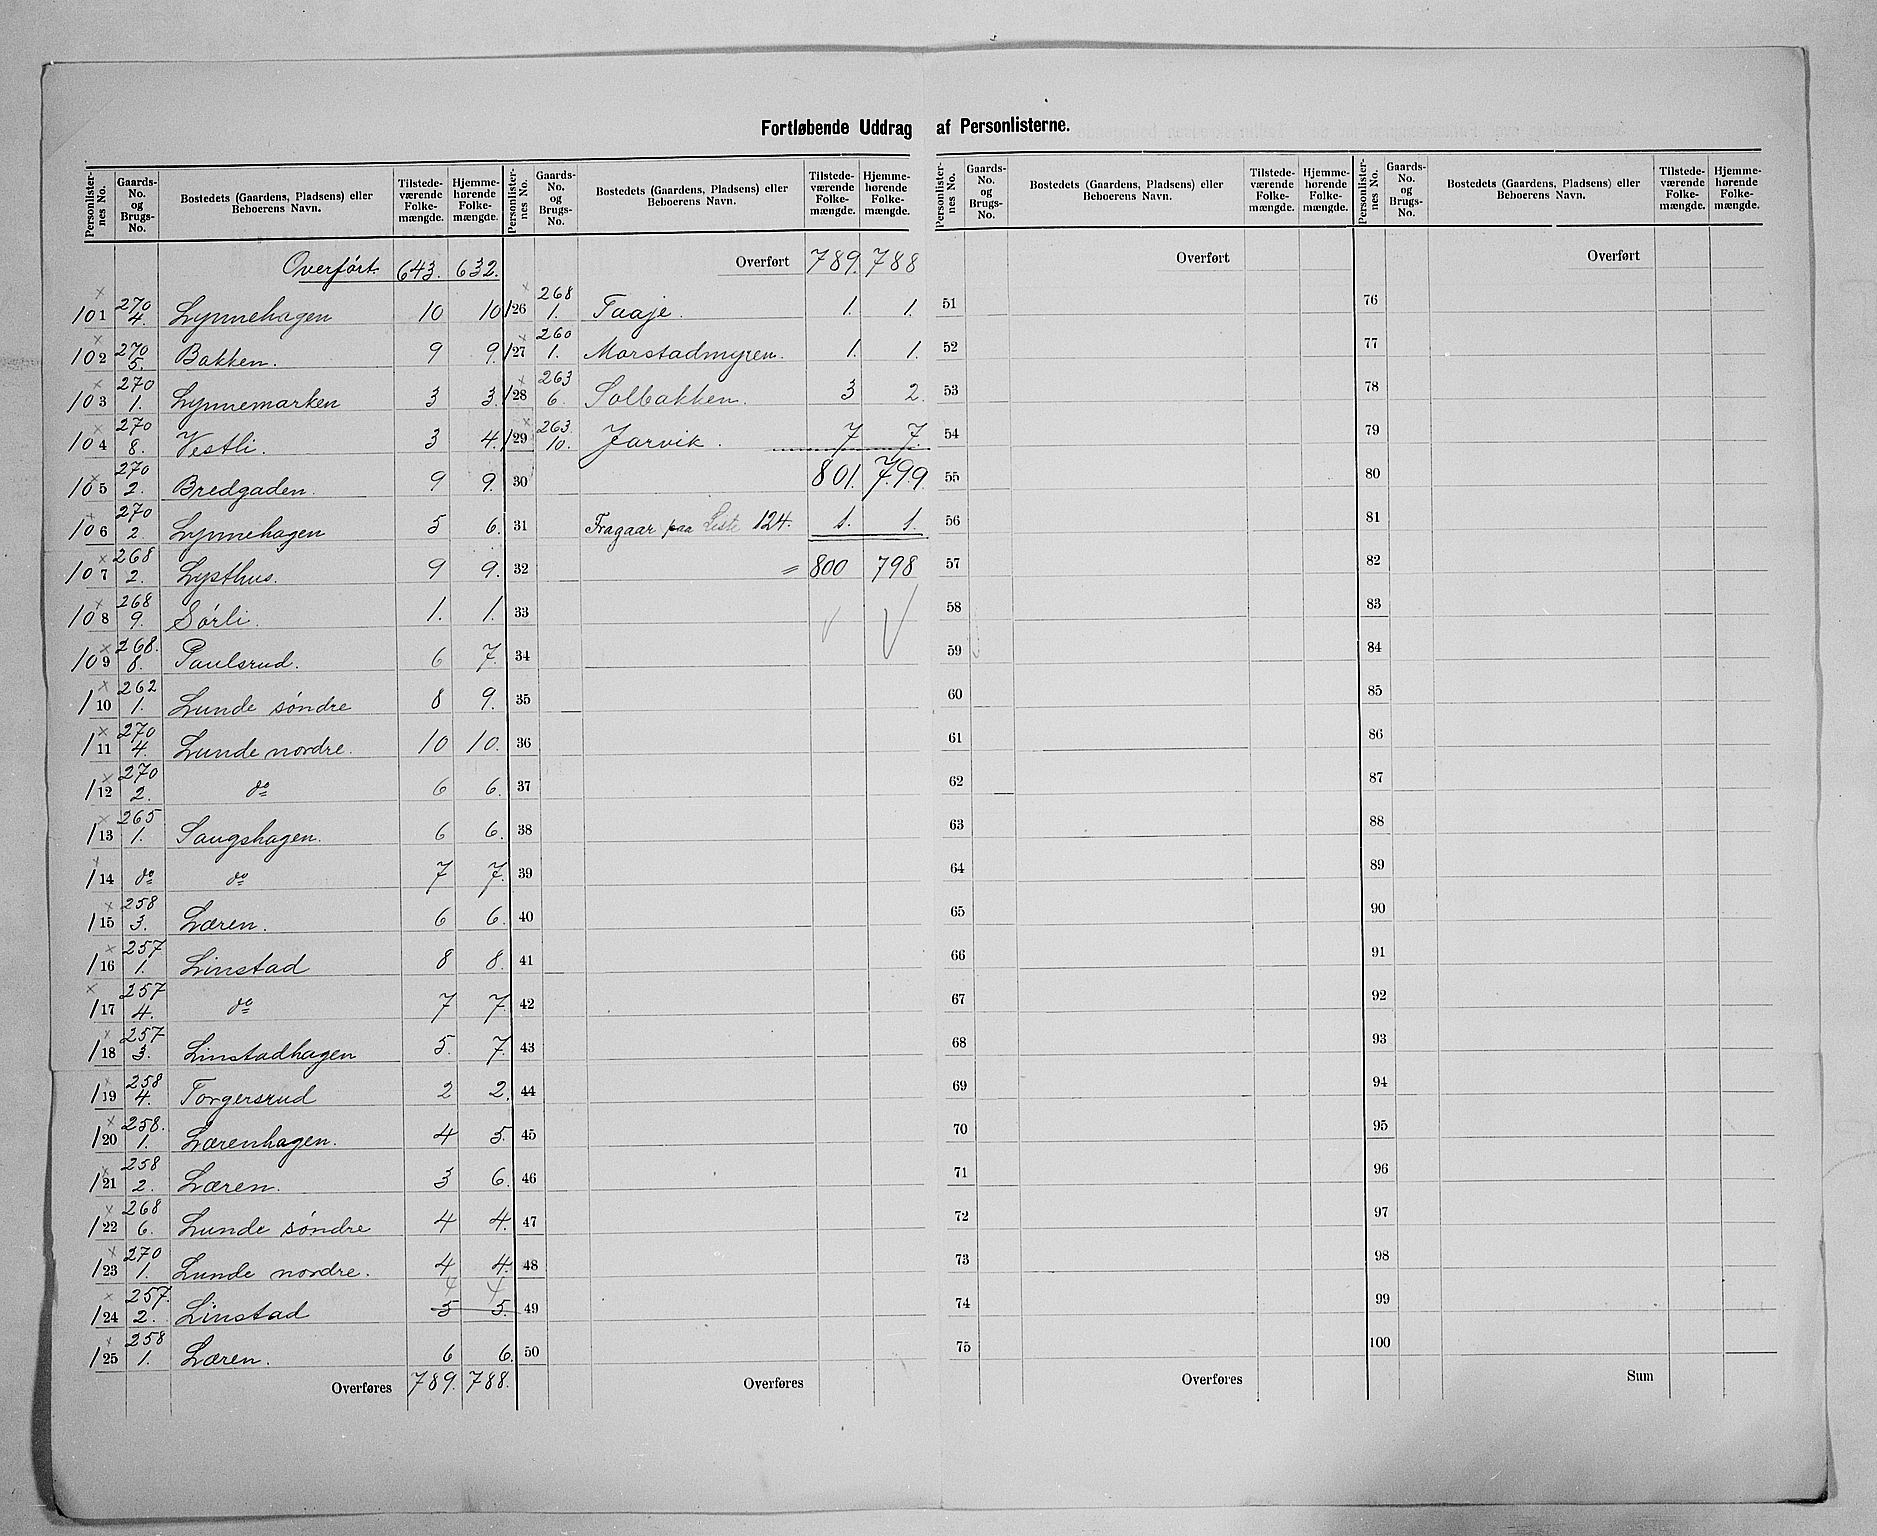 Fortløbende Uddrag af Personlisterne.
Personlister-nes No. | Gaards-No. og Brugs-No. | Bostedets (Gaardens, Pladsens) eller Beboerens Navn. | Tilstede-værende Folke-mængde. | Hjemme-hørende Folke-mængde.
Overført 643. 632.
101 270/4. Lynnehagen 10 10
102 270/5. Bakken. 9 9.
103 270/1. Lynnemarken 3 3.
104 270/8. Vestli. 3 4.
105 270/2. Bredgaden. 9 9.
106 270/2. Lynnehagen 5 6.
107 268/2. Lysthus. 9 9.
108 268/9. Sørli. 1. 1.
109 268./8. Paulsrud. 6 7.
110 262/1. Lunde søndre 8 9.
111 270/4. Lunde nordre. 10 10.
112 270/2. do 6 6.
113 265/1. Saugshagen. 6 6.
114 do do 7 7.
115 258/3. Læren. 6 6.
116 257/1. Linstad 8 8.
117 257/4. do 7 7.
118 257/3. Linstadhagen 5. 7.
119 258/4. Torgersrud 2 2.
120 258./1. Lærenhagen. 4 5.
121 258/2. Læren. 3 6.
122 268/6. Lunde søndre 4 4.
123 270/1. Lunde nordre. 4 4.
4 4
124 257./2. Linstad 5 5.
125 258/1. Læren. 6 6.
Overføres 789. 788.
Personlister-nes No. | Gaards-No. og Brugs-No. | Bostedets (Gaardens, Pladsens) eller Beboerens Navn. | Tilstede-værende Folke-mængde. | Hjemme-hørende Folke-mængde.
Overført 789. 788
126 268/1. Taaje. 1. 1.
127 260/1. Morstadmyren. 1. 1.
128 263/6. Solbakken. 3 2.
129 263./10. Jarvik. 7 7.
30 801. 799.
31 Fragaar paa Liste 124. 1. 1.
32 = 800 798
33
34
35
36
37
38
39
40
41
42
43
44
45
46
47
48
49
50
Overføres
Personlister-nes No. | Gaards-No. og Brugs-No. | Bostedets (Gaardens, Pladsens) eller Beboerens Navn. | Tilstede-værende Folke-mængde. | Hjemme-hørende Folke-mængde.
Overført
51
52
53
54
55
56
57
58
59
60
61
62
63
64
65
66
67
68
69
70
71
72
73
74
75
Overføres
Personlister-nes No. | Gaards-No. og Brugs-No. | Bostedets (Gaardens, Pladsens) eller Beboerens Navn. | Tilstede-værende Folke-mængde. | Hjemme-hørende Folke-mængde.
Overført
76
77
78
79
80
81
82
83
84
85
86
87
88
89
90
91
92
93
94
95
96
97
98
99
100
Sum